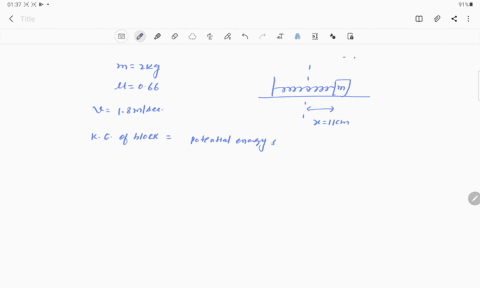 01:37
91%
Title
m = 2kg
μ = 0.66
v = 1.8m/sec.
m
x = 11cm
K.E. of block = potential energy s